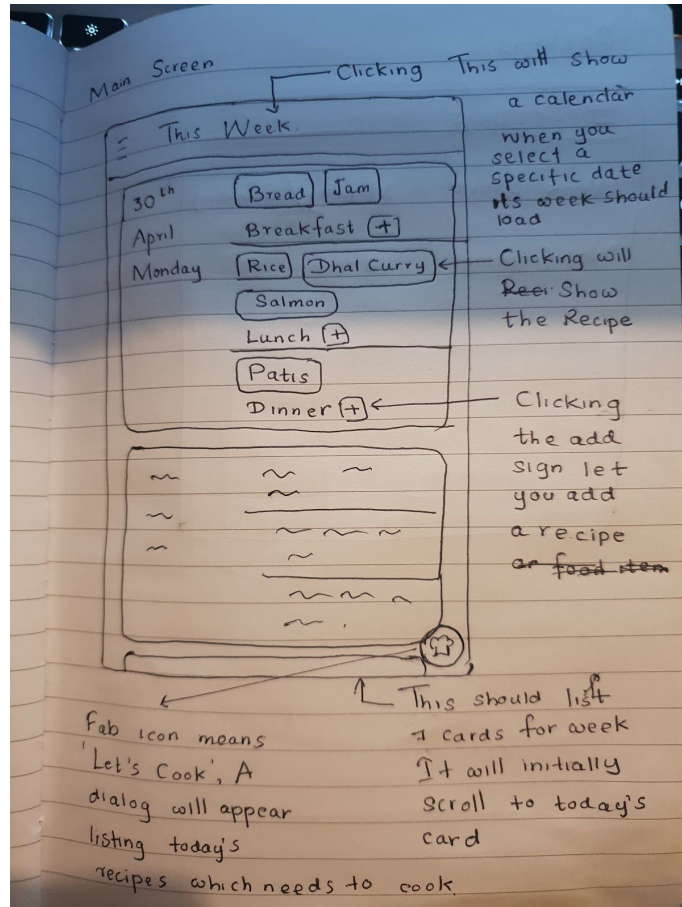 Main Screen
Clicking This will show
a calendar
when you
select a
specific date
its week should
load
This Week.
30th
April
Monday
Bread Jam
Breakfast +
Rice Dhal Curry
Salmon
Lunch +
Patis
Dinner +
Clicking will
Show
the Recipe
Clicking
the add
sign let
you add
a recipe
or food item
Fab icon means
'Let's Cook', A
dialog will appear
listing today's
recipes which needs to cook
This should list
7 cards for week
It will initially
scroll to today's
card